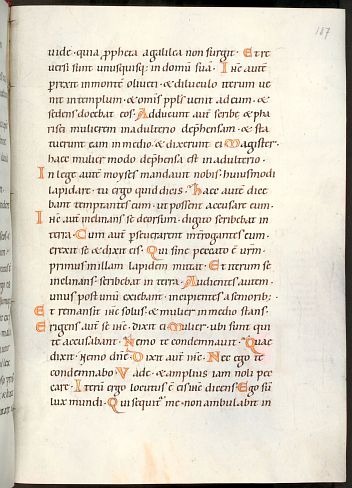 187
uide · quia ꝓpheta a galilea non surgit · Et re
uersi sunt unusquisq; in domũ suã · Ihc̃ autẽ
ꝑrexit in montẽ oliueti · & diluculo iterum ue
nit in templum · & omīs ppl̃s uenit ad eum · &
sedens docebat eos · Adducunt autẽ scribe & pha
risei mulierem in adulterio dep̃hensam · & sta
tuerunt eam in medio & dixerunt ei · Magister ·
haec mulier modo dep̃hensa est in adulterio ·
In lege autẽ moyses mandauit nobis huiusmodi
lapidare · tu ergo quid dicis · Haec autẽ dice
bant temptantes eum · ut possent accusare eum ·
Ihc̃ autẽ inclinans se deorsum · digito scribebat in
terra · Cum autẽ ꝑseuerarent int̃rogantes eum ·
erexit se & dixit eis · Qui sine peccato ẽ ur̃m ·
primus in illam lapidem mittat · Et iterum se
inclinans · scribebat in terra · Audientes autem ·
unus post unũ exiebant · incipientes aseniorib; ·
Et remansit ihc̃ solus · & mulier in medio stans ·
Erigens autẽ se ihc̃ · dixit ei · Mulier · ubi sunt qui
te accusabant · Nemo te condemnauit · Quae
dixit · Nemo dñe · Dixit autẽ ihc̃ · Nec ego te
condemnabo · Vade · & amplius iam noli pec
care · Iterũ ergo locutus ẽ eis ihc̃ dicens · Ego sũ
lux mundi · Qui sequit̃ me · non ambulabit in